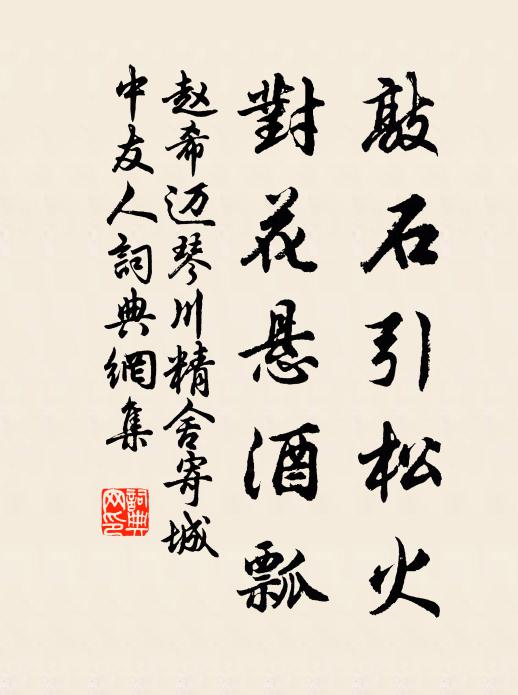 敲石引松火
對花悬酒瓢
赵希迈琴川精舍寄城
中友人詞典網集
詞典
网印